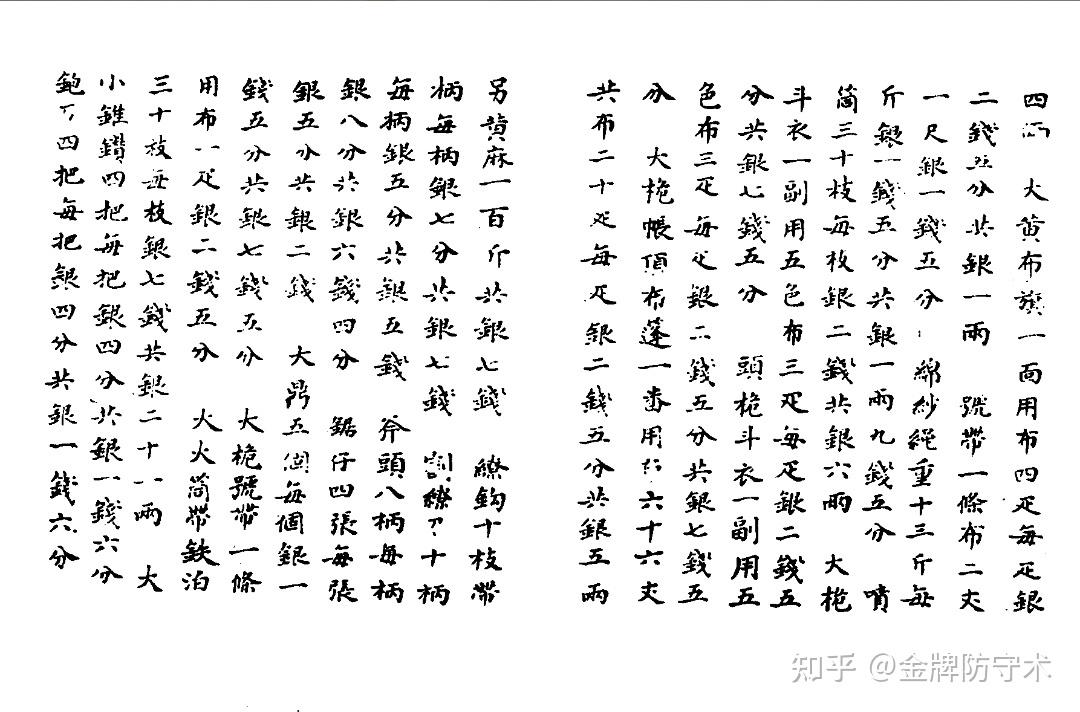 四兩 大黃布旗一面用布四疋每疋銀
二錢五分共銀一兩 號帶一條布二丈
一尺銀一錢五分 綿紗繩重十三斤每
斤銀一錢五分共銀一兩九錢五分 噴
筒三十枝每枝銀二錢共銀六兩 大桅
斗衣一副用五色布三疋每疋銀二錢五
分共銀七錢五分 頭桅斗衣一副用五
色布三疋每疋銀二錢五分共銀七錢五
分 大桅帳頂布蓬一番用 六十六丈
共布二十疋每疋銀二錢五分共銀五兩
另黃麻一百斤共銀七錢 繚鈎十枝帶
柄每柄銀七分共銀七錢 割繚刀十柄
每柄銀五分共銀五錢 斧頭八柄每柄
銀八分共銀六錢四分 鋸仔四張每張
銀五分共銀二錢 大鼎五個每個銀一
錢五分共銀七錢五分 大桅號帶一條
用布一疋銀二錢五分 火火筒帶鉄泊
三十枝每枝銀七錢共銀二十一兩 大
小錐鑽四把每把銀四分共銀一錢六分
鉋刀四把每把銀四分共銀一錢六分
知乎 @金牌防守术